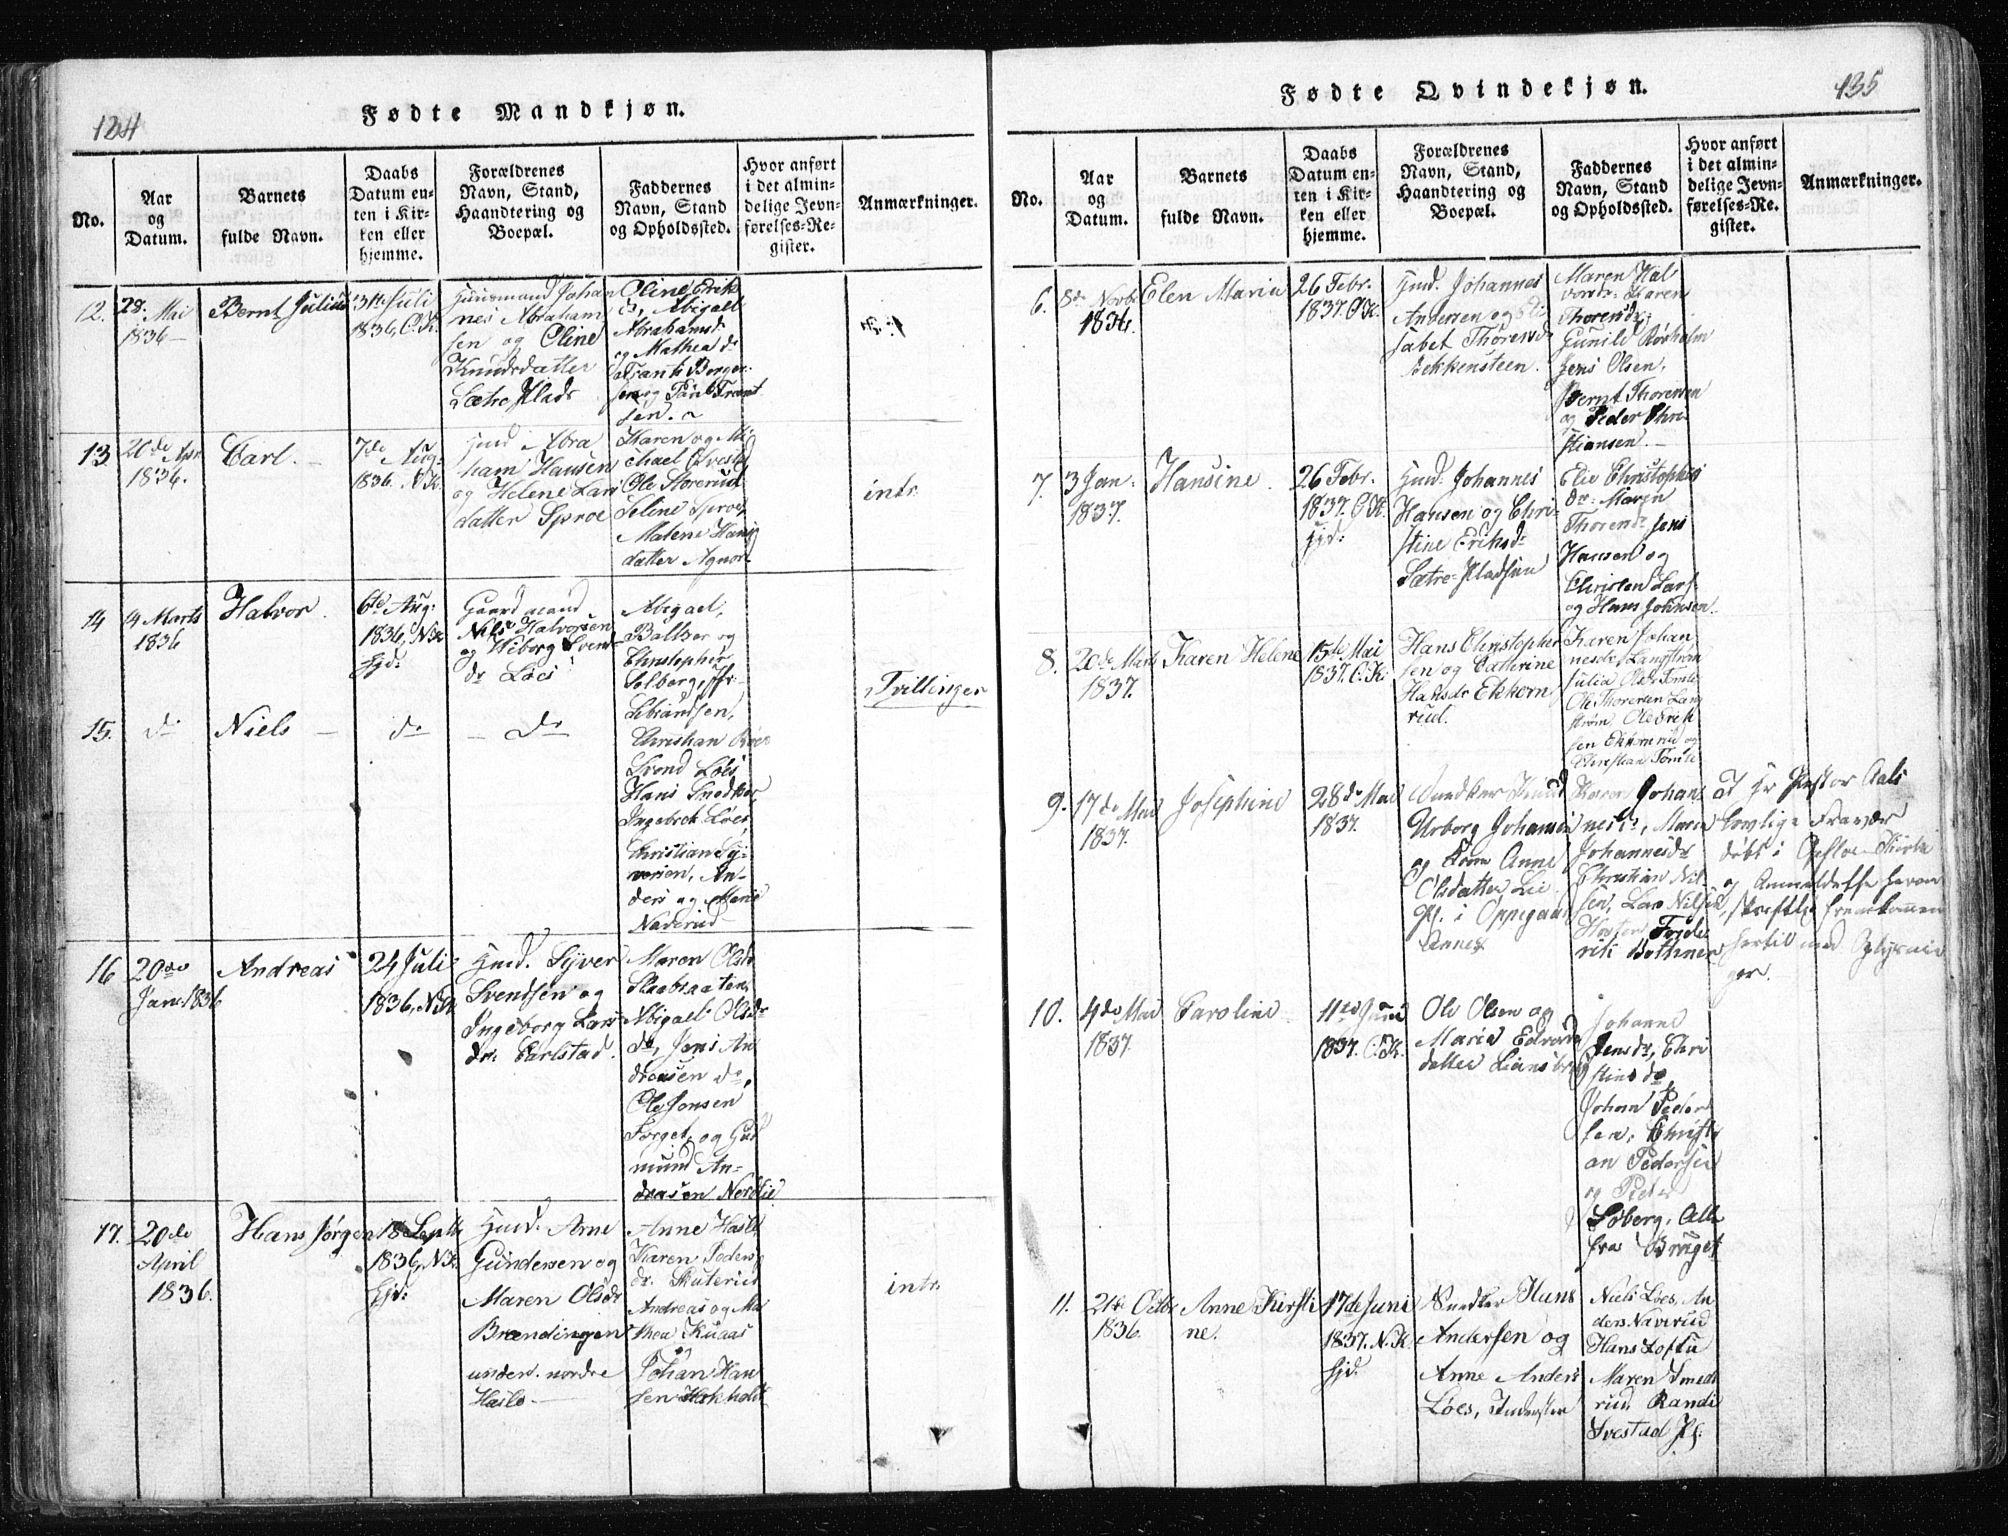 134
Fødte Mandkjøn.
No.
Aar
og
Datum.
Barnets
fulde Navn.
Daabs
Datum en-
ten i Kir-
ken eller
hjemme.
Forældrenes
Navn, Stand,
Haandtering og
Boepæl.
Faddernes
Navn, Stand
og Opholdssted.
Hvor anført
i det almin-
delige Jevn-
førelses-Re-
gister.
Anmærkninger.
12.
28. Mai
1836
Bernt Julius
Juli
1836, C.K.
Huusmand Johan
nes Abraham
sen og Oline
Knudsdatter
Sætre Plads
Oline Erik
Abigael
Abrahamsd.
og Mathea
sen.
13
20de Apr
1836.
Carl.
7de Aug.
1836. N.K.
Hmd. Abra
ham Hansen
og Helene Lars
datter Sproe
Karen og Mi
chael
Ole Storerud
Seline Sproe,
Malene Hans
datter Agnor
intr.
14
14 Marts
1836
Halvor.
6te Aug:
1836, N.K.
hjd:
Gaardmand
Niels Halvorsen
og Wiborg Svends
dr. Løes
Abigael,
Baltzer og
Christopher
Solberg,
Christian
Svend Løes
Hans Snedker,
Ingebret Løes,
Christian Sy-
versen, An-
ders og Marie
Naverud
Tvillinger
15.
do
Niels
do
do
16
20de
Jan. 1836
Andreas
24 Juli
1836, N.K.
Hmd. Syver
Svendsen og
Ingeborg Lars
dr. Carlstad.
Maren Olsdr
Skabsaaten,
Abigael Olsdr
do, Jens An
dreasen do,
Ole Jonsen
Torget, og Gud
mund An-
dreasen Nordlie
17.
20de
April
1836.
Hans Jørgen
18 Septb
1836, N.K.
hjd:
Hmd. Arne
Gundersen og
Maren Olsdr
Brændingen
under nordre
Hasle
Anne Hasle
Karen Peders
dr. Skuterud
Andreas og Ma
thea Knaas
og
Johan Han
sen Hokholdt
intr.
135
Fødte Qvindekjøn.
No.
Aar
og
Datum.
Barnets
fulde Navn.
Daabs
Datum en-
ten i Kir-
ken eller
hjemme.
Forældrenes
Navn, Stand,
Haandtering og
Boepæl.
Faddernes
Navn, Stand
og Opholdssted.
Hvor anført
i det almin-
delige Jevn-
førelses-Re-
gister.
Anmærkninger.
6.
8de Novbr
1836.
Elen Maria
26 Febr.
1837. C.K.
Hmd. Johannes
Andersen og Eli
sabet Thoresdr
Ekkensteen.
Maren Hal
vorsdr. Karen
Thoresdr,
Gunild Rørholm
Jens Olsen,
Bernt Thoresen
og Peder Chri-
stiansen
7.
3 Jan.
1837.
Hansine.
26 Febr.
1837. C.K.
hjd:
Hmd. Johannes
Hansen og Chri-
stine Eriksdr
Sætre-Pladsen
Elie Christophers
dr. Maren
Thoresdr Jens
Hansen og
Christen Lars
og Hans Johnsen.
8.
20de Marts
1837.
Karen Helene
15de Mai
1837. C.K.
Hans Christopher
sen og Cathrine
Hansdr Ekkorn
rud.
Karen Johan
nesdr Langstrøm
Julia Olsdr Tomte
Ole Thoresen Lang
strøm, Ole Erik
sen Ekkornrud og
Christian Tomte
9.
17de Mai
1837.
Josephine
28de Mai
1837.
Snedker Knud
Urborg Johansen
og Kone Anne
Olsdatter Lie
Pl. i Oppegaard
Annex
Karen Johan
nesdr, Maren
Johannesdr
Christian Nil-
sen, Lars Nilsen
Frede
rik Bothner
At Hr Pastor Aals
lovlige Fravær
døbt i Opsloe Kirke
og Anmeldelse herom
skriftlig fremkommen
hertil med Oplysnin
ger.
10.
4de Mai
1837.
Caroline
11te Juni
1837. C.K.
Ole Olsen og
Maria Edvards
datter
Johanne
Jensdr, Chri
stine do
Johan Peder
sen, Christi
an Pedersen
og Peder
Soberg, Alle
fra Bruget
11.
21de Octbr
1836.
Anne Kirsti
ne.
17de Juni
1837. N.K.
hjd:
Snedker Hans
Andersen og
Anne Anders
Løes, Inderster
Niels Løes, An
ders Naverud
Hans Toftu
Maren Smed
rud Randi
Ivestad Pl.